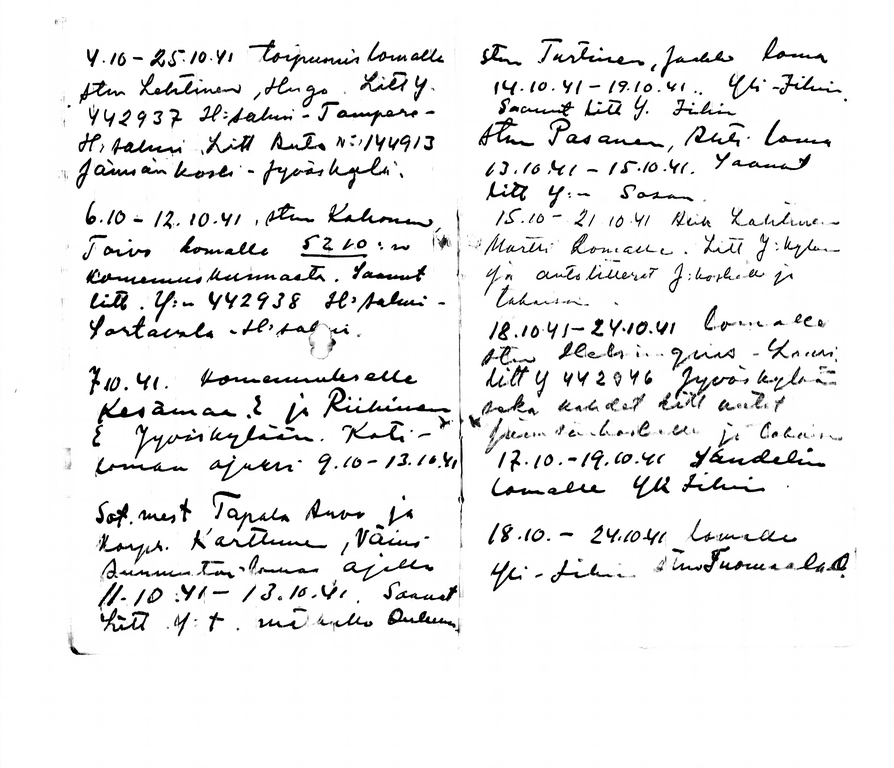 4.10-25.10.41 toipumislomalle
stm Lehtinen, Hugo. Litt Y.
442937 H:salmi-Tampere-
H:salmi Litt Auto No:144913
Jämsänkoski-Jyväskylä.
6.10-12.10.41. stm Kahonen,
Toivo lomalle 5210:n
komennuskunnasta. Saanut
litt. Y:n 442938 H:salmi-
Sortavala-H:salmi.
7.10.41. komennukselle
Kesämaa E ja Riihinen
E Jyväskylään. Koti-
loman ajaksi 9.10-13.10.41
Sot.mest Tapala Arvo ja
Korpr. Karttunen, Väinö
loman ajalle
11.10.41-13.10.41. Saanut
Litt Y:t. Ouluun
stm Turtinen, Jaakko loma
14.10.41-19.10.41.. Yli-Iihin.
Saanut Litt Y. Iihin
stm Pasanen, Antti loma
13.10.41-15.10.41. Saanut
litt Y:n
15.10-21.10.41 Lahtinen
Martti lomalle. Litt J:kylän
ja autolitterat J:koskelle ja
takaisin.
18.10.41-24.10.41 lomalle
stm
litt Y 442946 Jyväskylään
sekä kahdet litt autot
Jämsänkoskelle ja takaisin
17.10.-19.10.41 Sandelin
lomalle Yli Iihin.
18.10.-24.10.41 lomalle
Yli-Iihin stm Tuomaala O.